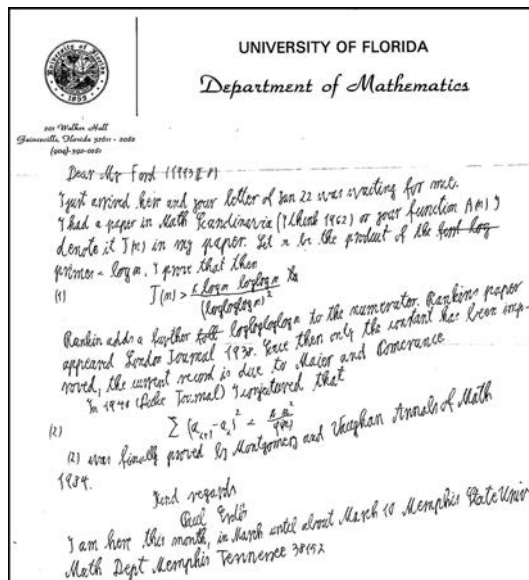 UNIVERSITY OF FLORIDA
Department of Mathematics
201 Walker Hall
Gainesville, Florida 32611 - 2082
(904)-392-0281
Dear Mr Ford
I just arrived here and your letter of Jan 22 was waiting for me.
I had a paper in Math Scandinavia (I think 1962) or your function A(n) I
denote it J(n) in my paper. Let n be the product of the
primes < log n, I prove that then
(1) J(n) > c log n loglog n / (logloglog n)²
Rankin adds a further loglogloglog n to the numerator. Rankins paper
appeared London Journal 1938. Since then only the constant has been imp-
roved, the current record is due to Maier and Pomerance
In 1940 (Duke Journal) I conjectured that
(2) Σ (a_{i+1} - a_i)² <
(2) was finally proved by Montgomery and Vaughan Annals of Math
1984.
Kind regards
Paul Erdős
I am here this month, in March until about March 10 Memphis State Univ
Math Dept Memphis Tennessee 38152